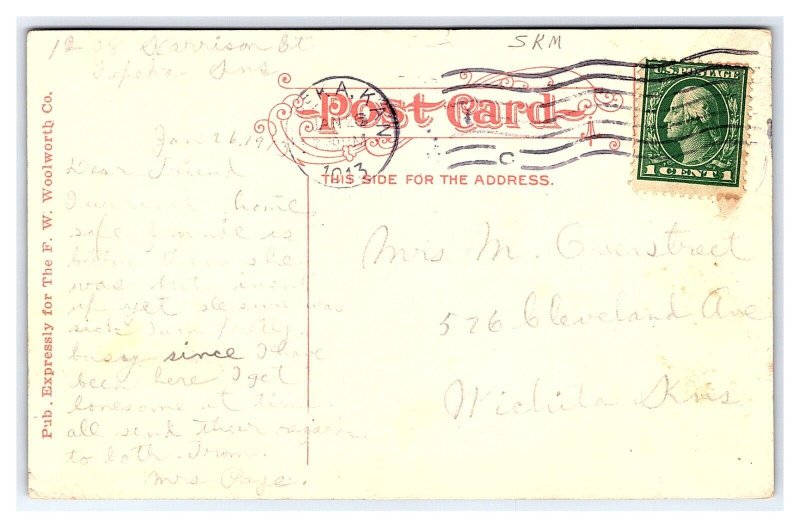 SKM
12 08 Harrison St
Topeka Kns
Jan 26, 19
Dear Friend
I arrived home
safe is
better than she
was but isent
up yet she sure was
sick I am prety
busy since I have
been here I get
lonesome at times
all send their regards
to both From
Mrs Page.
Pub. Expressly for The F. W. Woolworth Co.
Post Card
THIS SIDE FOR THE ADDRESS.
KA, KAN
JAN
1913
U.S. POSTAGE
1 CENT 1
Mrs M. Overstreet
526 Cleveland Ave
Wichita Kns